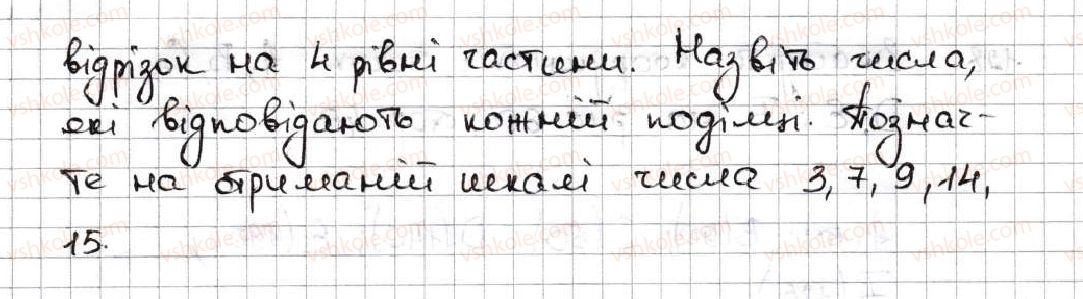 відрізок на 4 рівні частини. Назвіть числа,
які відповідають кожній поділці. Познач-
те на отриманій шкалі числа 3, 7, 9, 14,
15.